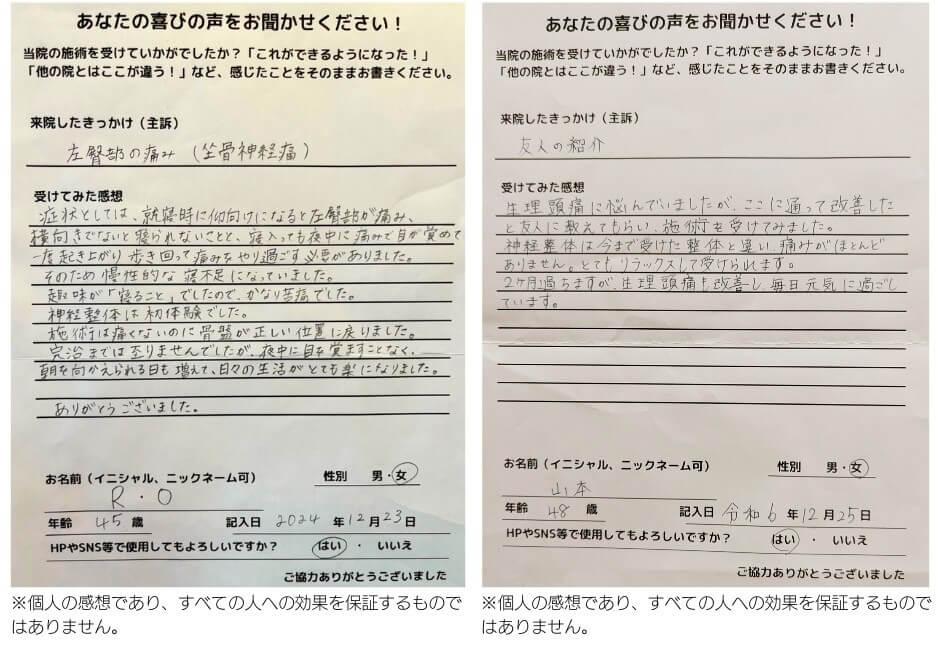 あなたの喜びの声をお聞かせください！
当院の施術を受けていかがでしたか？「これができるようになった！」
「他の院とはここが違う！」など、感じたことをそのままお書きください。
来院したきっかけ（主訴）
左臀部の痛み（坐骨神経痛）
受けてみた感想
症状としては、就寝時に仰向けになると左臀部が痛み、
横向きでないと寝られないことと、寝入っても夜中に痛みで目が覚めて
一度起き上がり歩き回って痛みをやり過ごす必要がありました。
そのため慢性的な寝不足になっていました。
趣味が「寝ること」でしたので、かなり苦痛でした。
神経整体は初体験でした。
施術は痛くないのに骨盤が正しい位置に戻りました。
完治までは至りませんでしたが、夜中に目を覚ますことなく、
朝を向かえられる日も増えて、日々の生活がとても楽になりました。
ありがとうございました。
お名前（イニシャル、ニックネーム可）　性別　男・女
R・O
年齢 45 歳　記入日 2024 年 12 月 23 日
HPやSNS等で使用してもよろしいですか？　はい・いいえ
ご協力ありがとうございました
※個人の感想であり、すべての人への効果を保証するもので
はありません。
あなたの喜びの声をお聞かせください！
当院の施術を受けていかがでしたか？「これができるようになった！」
「他の院とはここが違う！」など、感じたことをそのままお書きください。
来院したきっかけ（主訴）
友人の紹介
受けてみた感想
生理頭痛に悩んでいましたが、ここに通って改善した
と友人に教えてもらい、施術を受けてみました。
神経整体は今まで受けた整体と違い、痛みがほとんど
ありません。とてもリラックスして受けられます。
2ヶ月過ちますが、生理頭痛も改善し、毎日元気に過ごし
ています。
お名前（イニシャル、ニックネーム可）　性別　男・女
山本
年齢 48 歳　記入日 令和6 年 12 月 25 日
HPやSNS等で使用してもよろしいですか？　はい・いいえ
ご協力ありがとうございました
※個人の感想であり、すべての人への効果を保証するもので
はありません。